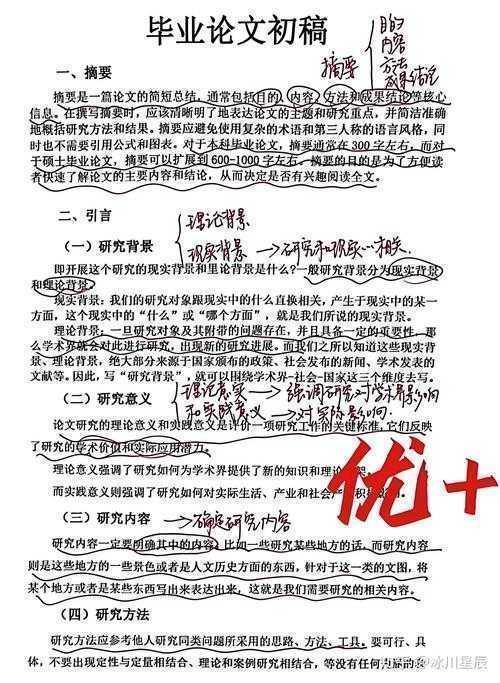 毕业论文初稿
目的
内容
方法
成果结论
摘要
一、摘要
摘要是一篇论文的简短总结，通常包括目的、内容、方法和成果结论等核心
信息。在撰写摘要时，应该清晰明了地表达论文的主题和研究重点，并简洁准确
地概括研究方法和结果。摘要应避免使用复杂的术语和第三人称的语言风格，同
时也不需要引用公式和图表。对于本科毕业论文，摘要通常在300字左右，而对
于硕士毕业论文，摘要可以扩展到600-1000字左右。摘要的目的是为了方便读
者快速了解论文的主要内容和结论，从而决定是否有兴趣阅读全文。
二、引言
理论背景
（一）研究背景
现实背景→研究和现实心相关.
即开展这个研究的现实背景和里论背景是什么?一般研究背景分为现实背景
和理论背景。
现实背景：我们的研究对象跟现实中的什么直接相关，产生于现实中的某一
方面，这个现实中的“什么”或“哪个方面”，就是我们所说的现实背景。
理论背景：一旦研究对象及其附带的问题存在，并且具备一定的重要性，那
么学术界就会对此进行研究，出现新的研究进展。而我们之所以知道这些现实背
景、理论背景，绝大部分来源于国家颁布的政策、社会发布的新闻、学术发表的
文献等。因此，写“研究背景”，就可以围绕学术界-社会-国家这三个维度去写。
（二）研究意义
理论意义→强调研究对学术界影响
和实践意义→对实际影响.
论文研究的理论意义和实践意义是评价一项研究工作的关键标准，它们反映
了研究的学术价值和实际应用潜力。
理论意义强调了研究如何为学术界提供了新的知识和理论
而实践意义则强调了研究如何对实际生活、产业和社会产
优+
（三）研究内容
→确定研究内容
研究内容一定要明确其中的内容，比如一些研究某些地方的话，而研究内容
则是这些地方的一些景色或者是人文历史方面的东西，针对于这一类的文图，将
某个地方或者是某些东西写出来表达出来，这就是我们需要研究的相关内容。
（四）研究方法
研究方法应参考他人研究同类问题所采用的思路、方法、工具。要可行、具
体，不要出现定性与定量相结合、理论和案例研究相结合，等没有任何
知乎 @冰川星辰